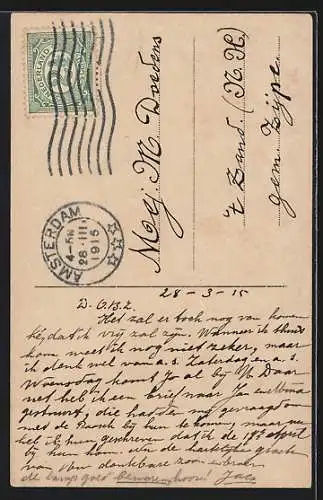 NEDERLAND
AMSTERDAM
4-5N
28 III
1915
Mej. M. Doedens
't Zand. (N. H.)
gem. Zijpe
28-3-15
Het zal er toch nog van komen
hoor, dat ik vrij zal zijn. Wanneer ik thuis
kom weet ik nog niet zeker, maar
ik denk wel van a.s. Zaterdag en a.s.
Woensdag komt Jo al bij N. Daar
net heb ik een brief naar Jan
gestuurd, die hadden mij gevraagd om
met de Paasch bij hun te komen, maar nu
heb ik hun geschreven dat ik de 17de April
bij hun kom. Na de hartelijke groeten
van Uw dankbare zoon en broer
de lamp goed bewaren hoor! Jac.